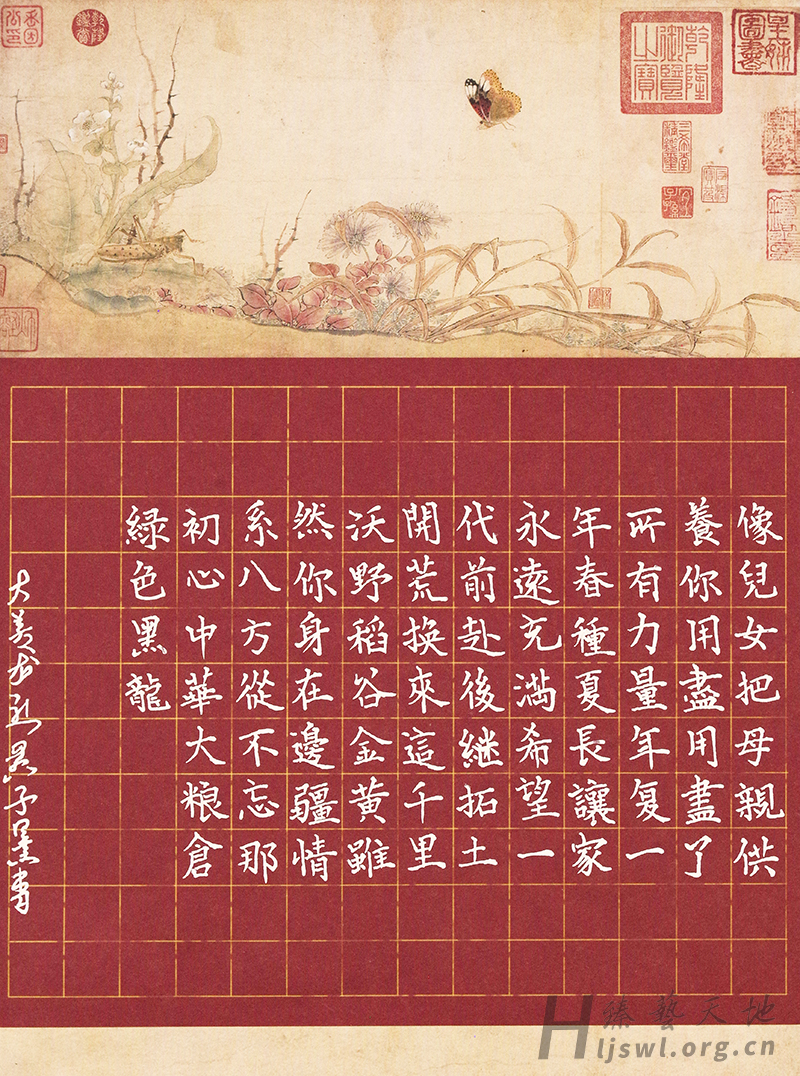 乾隆御覽之寶
宜子孫
像兒女把母親供
養你用盡用盡了
所有力量年复一
年春種夏長讓家
永遠充滿希望一
代前赴後継拓土
開荒換來這千里
沃野稻谷金黄雖
然你身在邊疆情
系八方從不忘那
初心中華大粮倉
緑色黑龍
大美
臻藝天地
Hljswl.org.cn